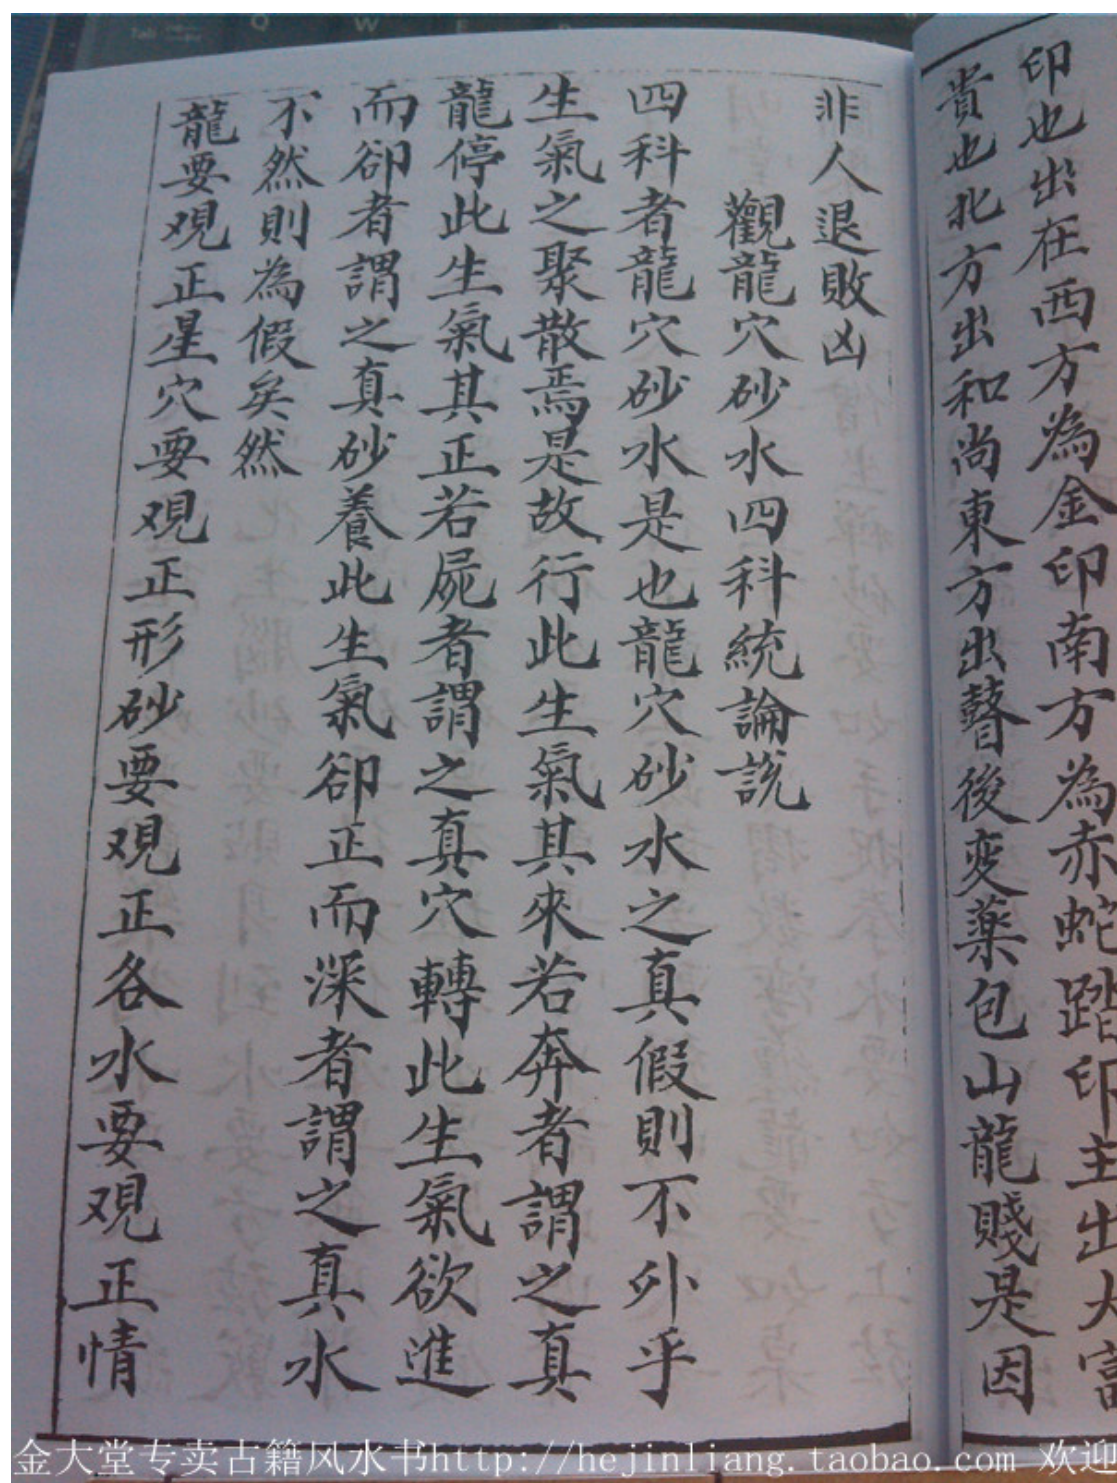 印也出在西方為金印南方為赤蛇踏印主出大富
貴也北方出和尚東方出瞽後変薬包山龍賤是因
非人退敗凶
觀龍穴砂水四科統論說
四科者龍穴砂水是也龍穴砂水之真假則不外乎
生氣之聚散焉是故行此生氣其來若奔者謂之真
龍停此生氣其正若屍者謂之真穴轉此生氣欲進
而卻者謂之真砂養此生氣卻正而深者謂之真水
不然則為假矣然
龍要观正星穴要观正形砂要观正各水要观正情
金大堂专卖古籍风水书http://hejinliang.taobao.com 欢迎